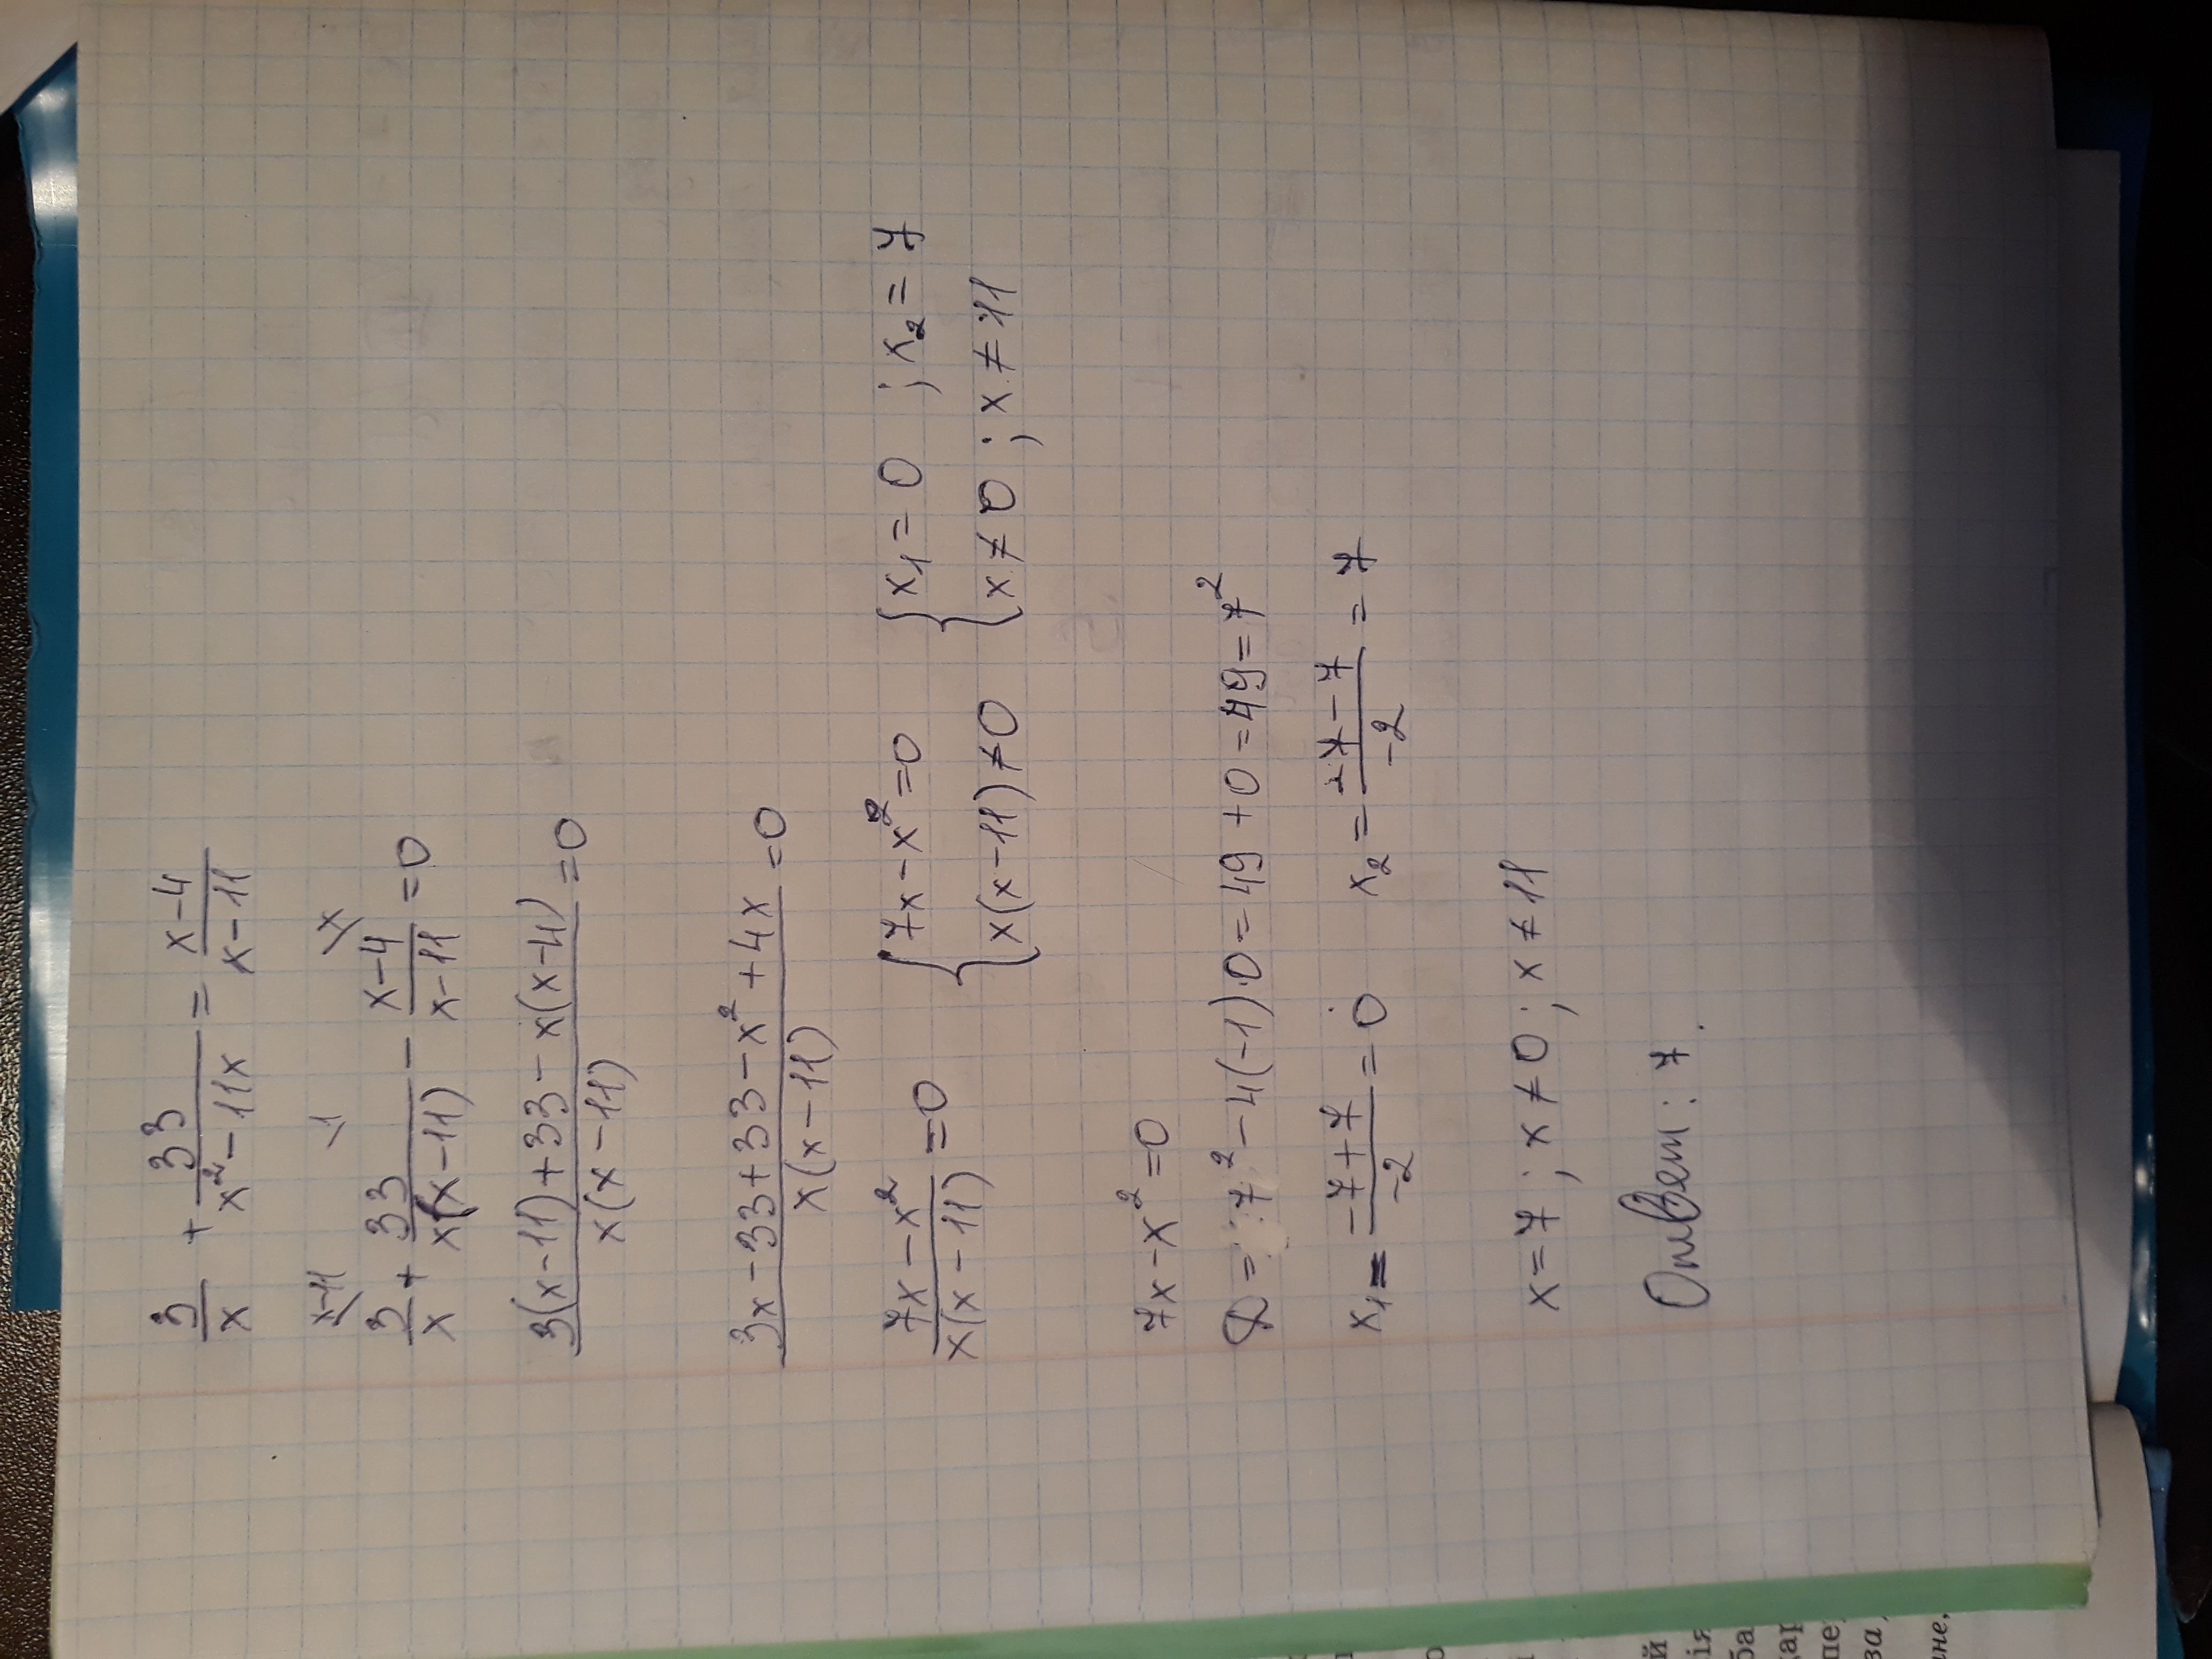 3/x + 33/(x²-11x) = (x-4)/(x-11)
x-11\ 1\ x\
3/x + 33/(x(x-11)) - (x-4)/(x-11) = 0
(3(x-11)+33-x(x-4))/(x(x-11)) = 0
(3x-33+33-x²+4x)/(x(x-11)) = 0
(7x-x²)/(x(x-11)) = 0 { 7x-x²=0 { x₁=0 ; x₂=7
x(x-11)≠0 x≠0 ; x≠11
7x-x²=0
D=7²-4(-1)·0=49+0=49=7²
x₁=(-7+7)/(-2)=0 x₂=(-7-7)/(-2)=7
x=7 ; x≠0 ; x≠11
Ответ: 7.